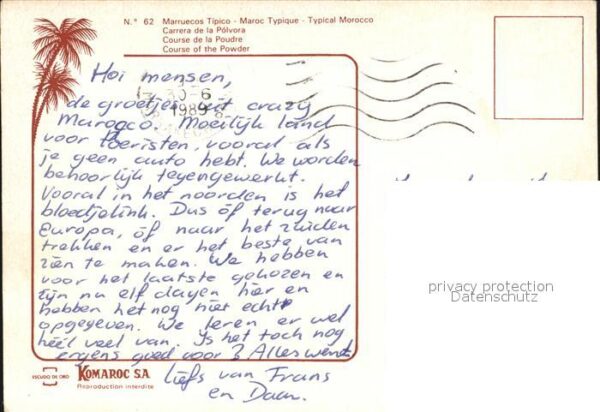 N.° 62 Marruecos Típico - Maroc Typique - Typical Morocco
Carrera de la Pólvora
Course de la Poudre
Course of the Powder
Hoi mensen,
30-6
1989
de groetjes uit crazy
Marocco. Moeilijk land
voor toeristen, vooral als
je geen auto hebt. We worden
behoorlijk tegengewerkt.
Vooral in het noorden is het
bloedjelink. Dus óf terug naar
Europa, óf naar het zuiden
trekken en er het beste van
zien te maken. We hebben
voor het laatste gekozen en
zijn nu elf dagen hier en
hebben het nog niet echt
opgegeven. We leren er wel
héél veel van. Is het toch nog
ergens goed voor? Alles went
liefs van Frans
en Daan.
privacy protection
Datenschutz
ESCUDO DE ORO
KOMAROC S.A.
Reproduction interdite